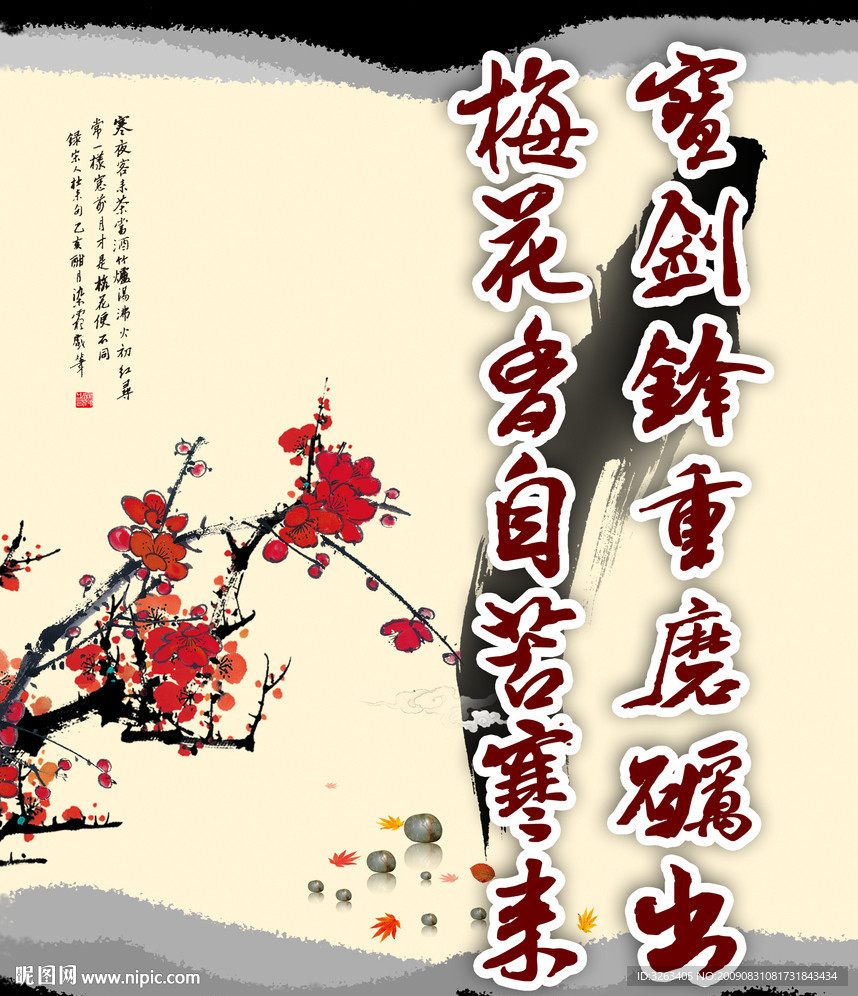 寶劍鋒重磨礪出
梅花香自苦寒来
寒夜客来茶當酒竹爐湯沸火初红尋
常一樣窓前月才是梅花便不同
録宋人杜耒句乙亥
昵图网 www.nipic.com
ID:3263405 NO.20090831081731843434